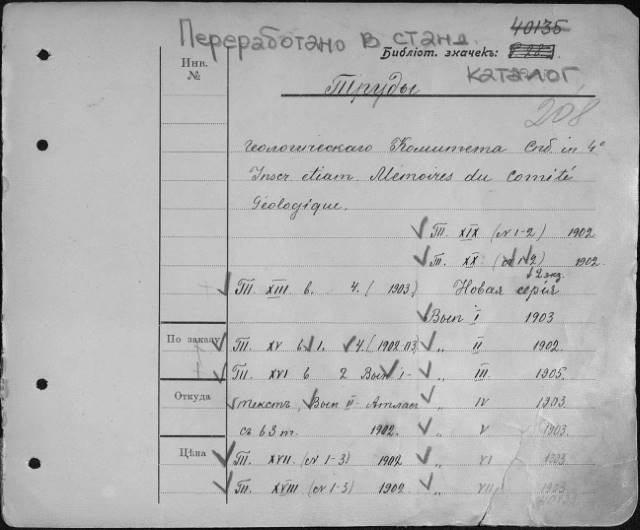 Переработано в станд.
40135
Библіот. значекъ:
каталог
Инв.
№
Труды
208
Геологическаго Комитета Спб. in 4°
Inscr. etiam. Mémoires du Comité
Géologique.
Т. XIX (№ 1-2) 1902
Т. XX (№ 1 2) 1902
2 экз.
Т. XIII в. 4. (1903) Новая серія
Вып I 1903
По заказу Т. XV в 1. 4. (1902.03) „ II 1902.
Т. XVI в 2 Вып I- „ III 1905.
Откуда текстъ, Вып II- Атлас „ IV 1903.
съ 63 т. 1902. „ V 1903.
Цѣна Т. XVII. (№ 1-3) 1902 „ VI 1903
Т. XVIII (№ 1-3) 1902 „ VII 1903